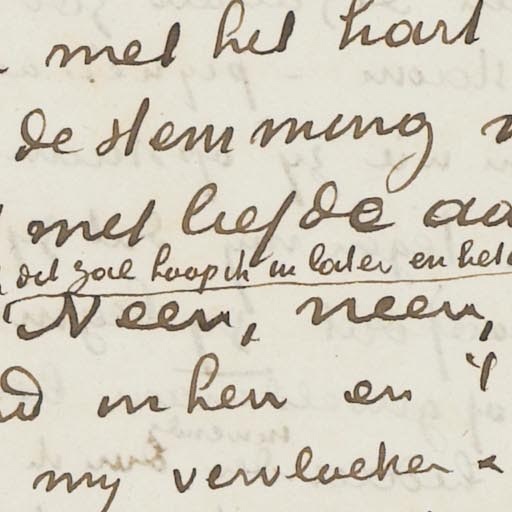 met het hart
de stemming
met liefde aa
dit zal hoop ik u later en hel
Neen, neen,
in hen en 't
my vervloeken